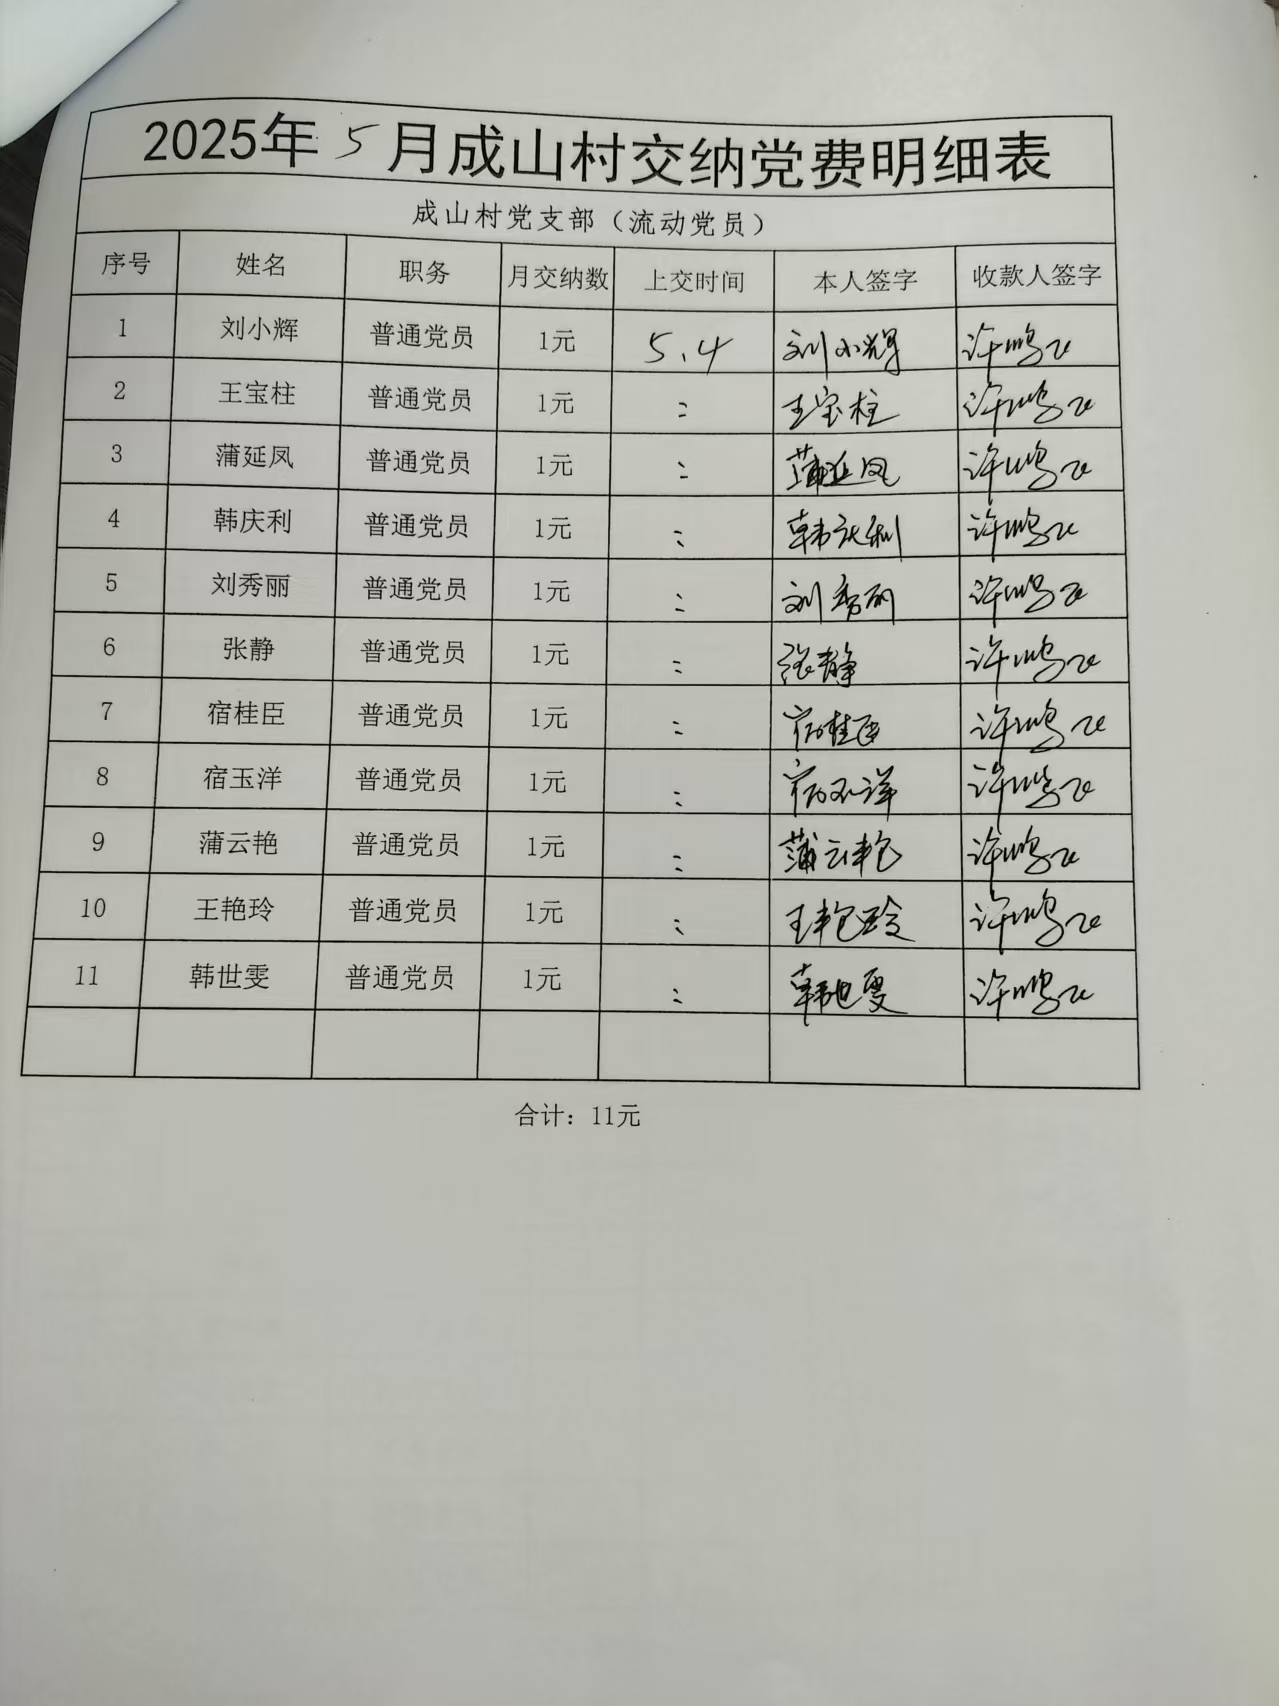 2025年5月成山村交纳党费明细表
成山村党支部（流动党员）
序号 姓名 职务 月交纳数 上交时间 本人签字 收款人签字
1 刘小辉 普通党员 1元 5.4 刘小辉 许鹏飞
2 王宝柱 普通党员 1元 〃 王宝柱 许鹏飞
3 蒲延凤 普通党员 1元 〃 蒲延凤 许鹏飞
4 韩庆利 普通党员 1元 〃 韩庆利 许鹏飞
5 刘秀丽 普通党员 1元 〃 刘秀丽 许鹏飞
6 张静 普通党员 1元 〃 张静 许鹏飞
7 宿桂臣 普通党员 1元 〃 宿桂臣 许鹏飞
8 宿玉洋 普通党员 1元 〃 宿玉洋 许鹏飞
9 蒲云艳 普通党员 1元 〃 蒲云艳 许鹏飞
10 王艳玲 普通党员 1元 〃 王艳玲 许鹏飞
11 韩世雯 普通党员 1元 〃 韩世雯 许鹏飞
合计：11元